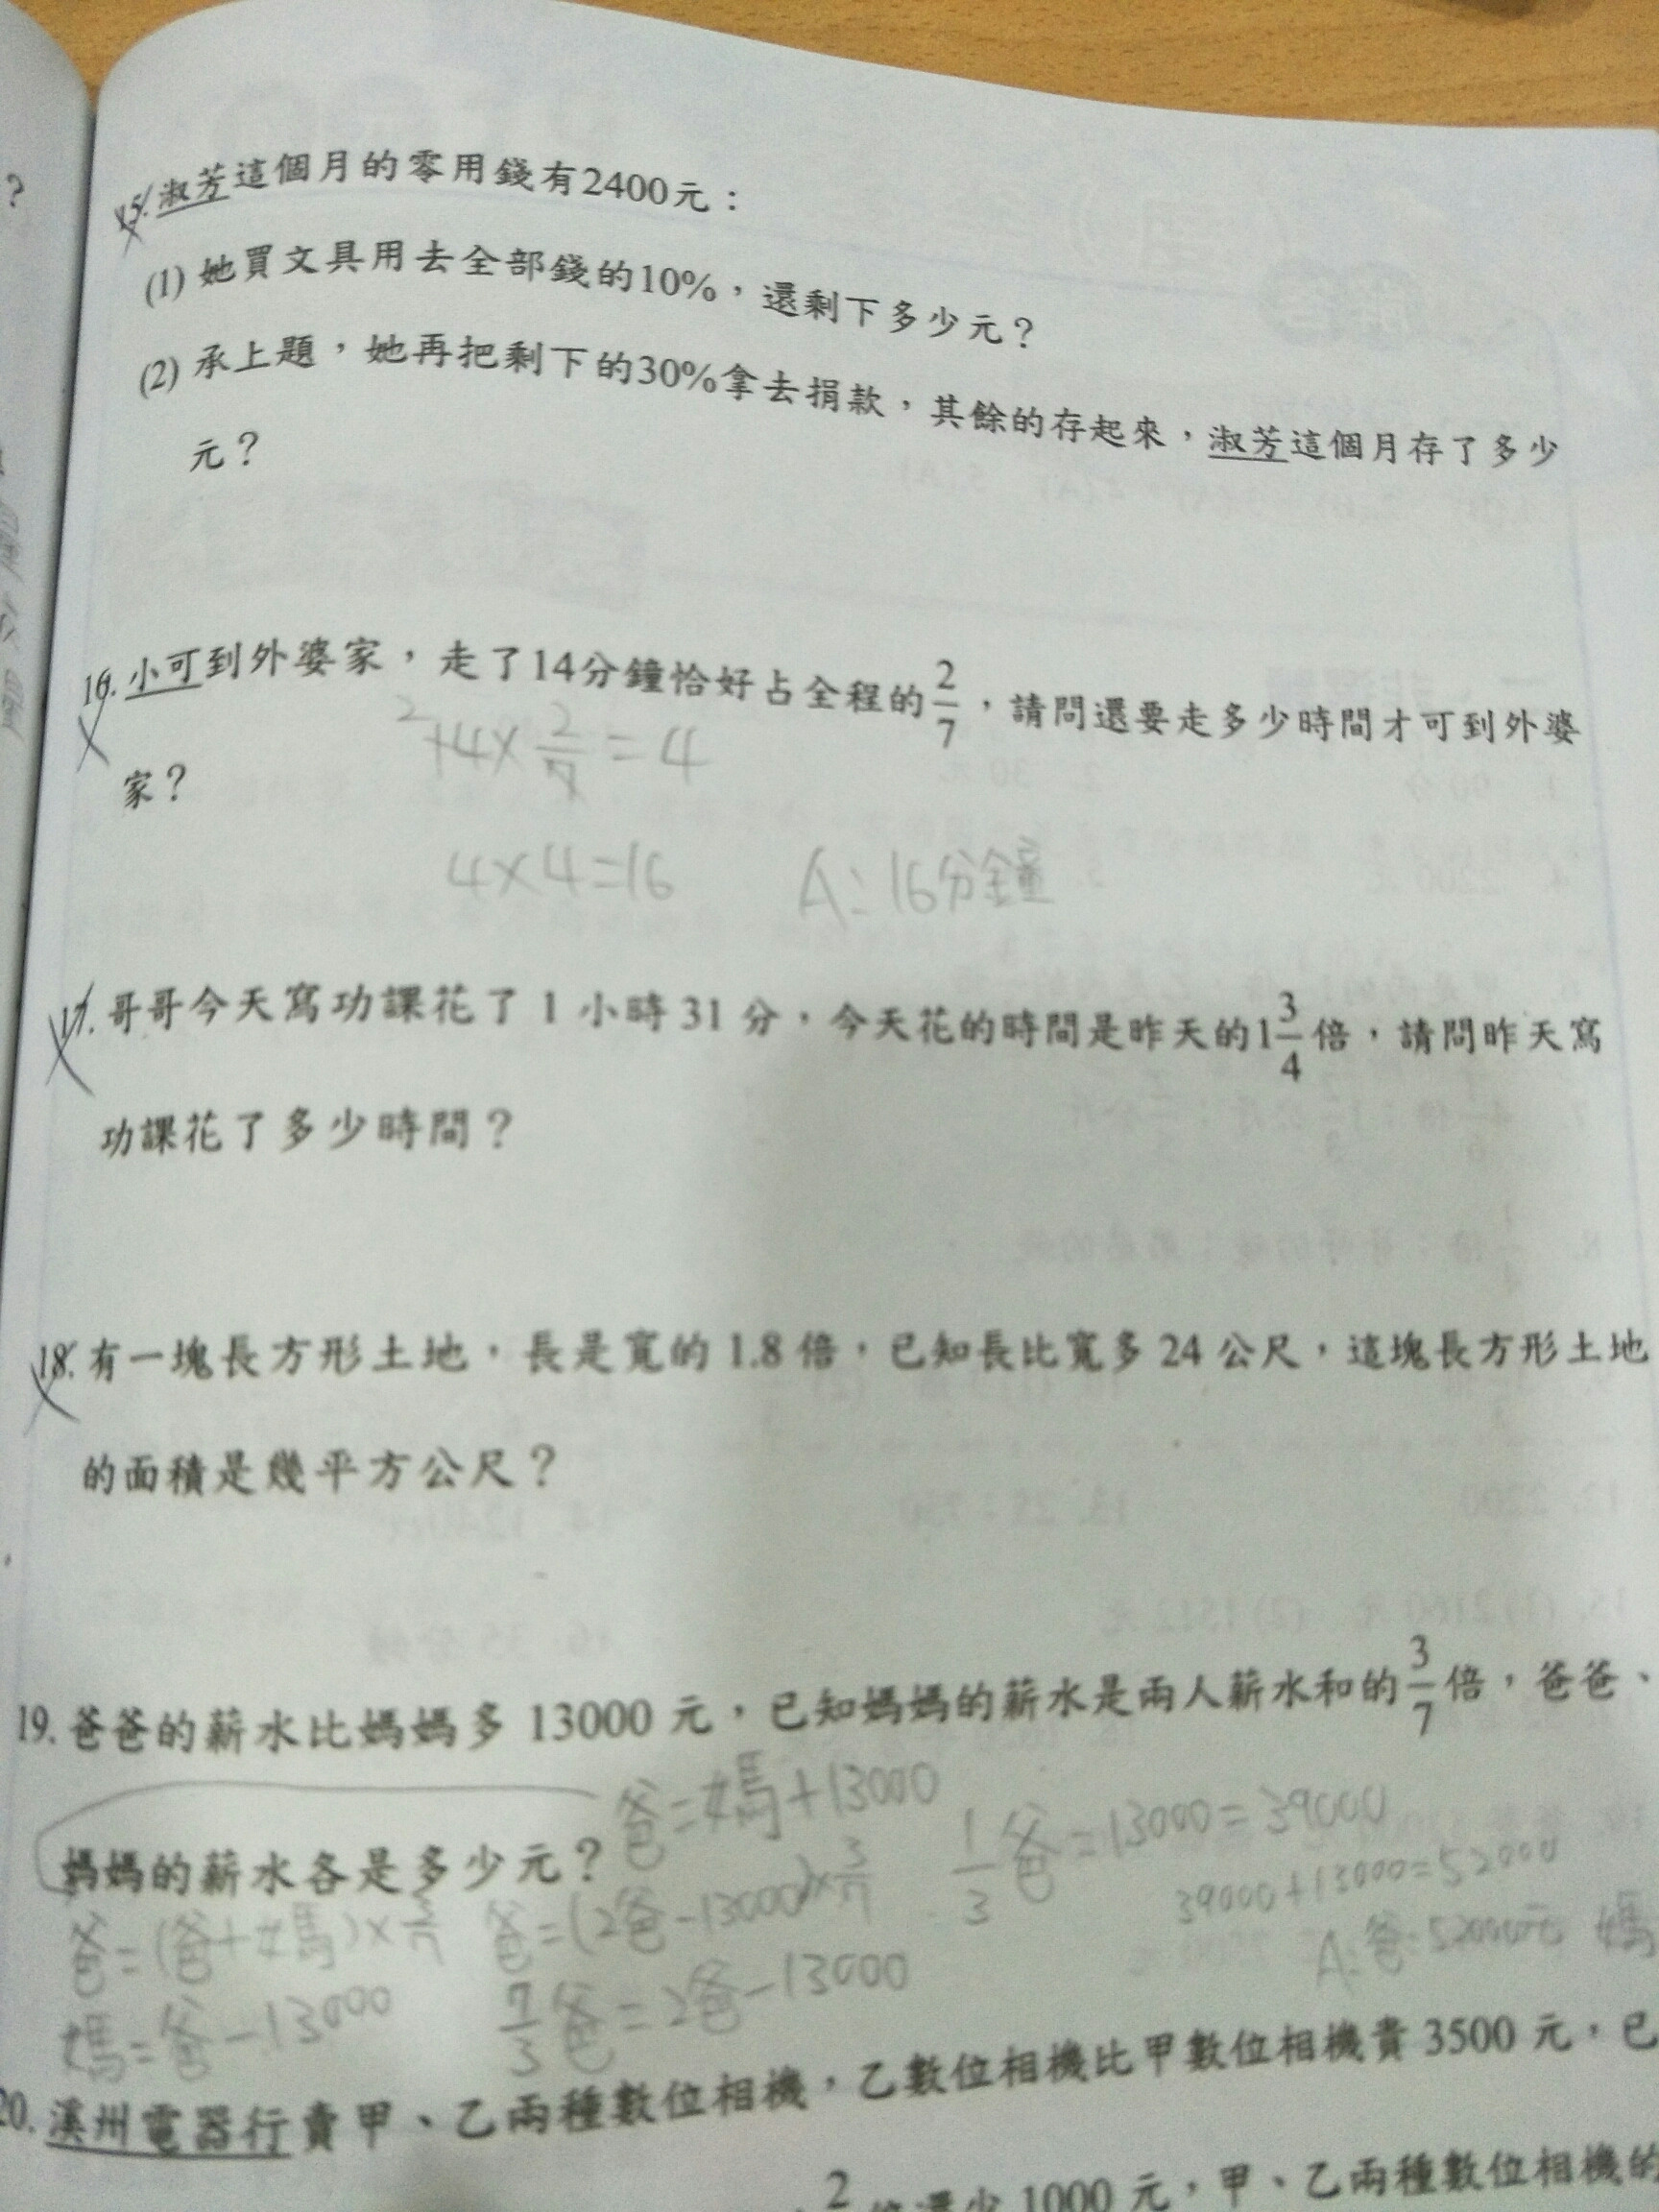 ?
15. 淑芳這個月的零用錢有2400元：
(1) 她買文具用去全部錢的10%，還剩下多少元？
(2) 承上題，她再把剩下的30%拿去捐款，其餘的存起來，淑芳這個月存了多少
元？
16. 小可到外婆家，走了14分鐘恰好占全程的2/7，請問還要走多少時間才可到外婆
家？
14×2/7=4
4×4=16
A：16分鐘
17. 哥哥今天寫功課花了 1 小時 31 分，今天花的時間是昨天的1 3/4倍，請問昨天寫
功課花了多少時間？
18. 有一塊長方形土地，長是寬的 1.8 倍，已知長比寬多 24 公尺，這塊長方形土地
的面積是幾平方公尺？
19. 爸爸的薪水比媽媽多 13000 元，已知媽媽的薪水是兩人薪水和的3/7倍，爸爸、
媽媽的薪水各是多少元？
爸=媽+13000
1/3爸=13000=39000
39000+13000=52000
爸=(爸+媽)×3/7
爸=(2爸-13000)×3/7
A：爸：52000元 媽
媽=爸-13000
7/3爸=2爸-13000
20. 溪州電器行賣甲、乙兩種數位相機，乙數位相機比甲數位相機貴 3500 元，已
倍還少 1000 元，甲、乙兩種數位相機的